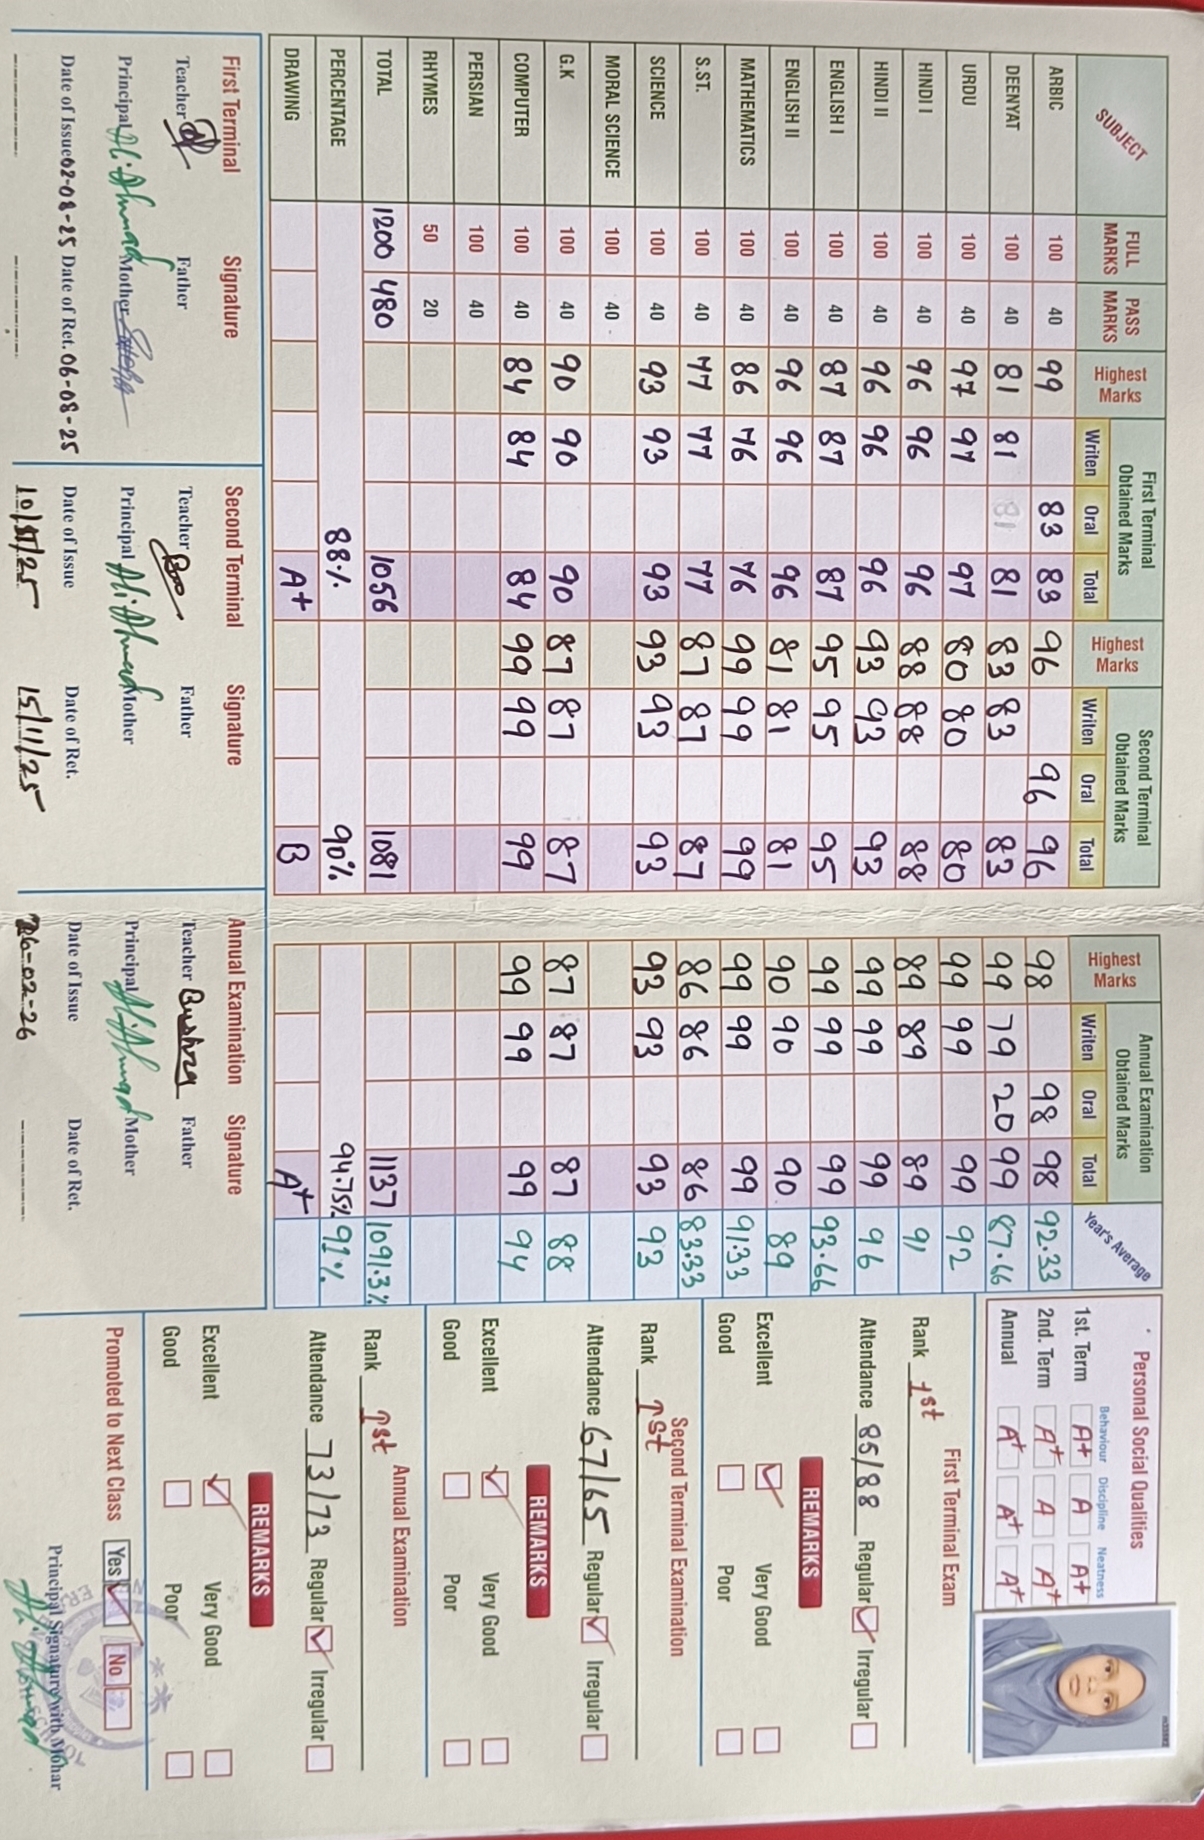 SUBJECT FULL MARKS PASS MARKS Highest Marks First Terminal Obtained Marks Writen Oral Total Highest Marks Second Terminal Obtained Marks Writen Oral Total Highest Marks Annual Examination Obtained Marks Writen Oral Total Year's Average
ARBIC 100 40 99 83 83 96 96 96 98 98 98 92.33
DEENYAT 100 40 81 81 81 81 83 83 83 99 79 20 99 87.66
URDU 100 40 97 97 97 80 80 80 99 99 99 92
HINDI I 100 40 96 96 96 88 88 88 89 89 89 91
HINDI II 100 40 96 96 96 93 93 93 99 99 99 96
ENGLISH I 100 40 87 87 87 95 95 95 99 99 99 93.66
ENGLISH II 100 40 96 96 96 81 81 81 90 90 90 89
MATHEMATICS 100 40 86 76 76 99 99 99 99 99 99 91.33
S.ST. 100 40 77 77 77 87 87 87 86 86 86 83.33
SCIENCE 100 40 93 93 93 93 93 93 93 93 93 93
MORAL SCIENCE 100 40
G.K 100 40 90 90 90 87 87 87 87 87 87 88
COMPUTER 100 40 84 84 84 99 99 99 99 99 99 94
PERSIAN 100 40
RHYMES 50 20
TOTAL 1200 480 1056 1081 1137 1091.3%
PERCENTAGE 88% 90% 94.75% 91%
DRAWING A+ B A+
First Terminal Signature
Teacher Father
Principal Ali Ahmad Mother
Date of Issue 02-08-25 Date of Ret. 06-08-25
Second Terminal Signature
Teacher Father
Principal Ali Ahmad Mother
Date of Issue Date of Ret.
15/11/25
Annual Examination Signature
Teacher Bushra Father
Principal Ali Ahmad Mother
Date of Issue Date of Ret.
26-02-26
Personal Social Qualities
Behaviour Discipline Neatness
1st. Term A+ A A+
2nd. Term A+ A A+
Annual A+ A+ A+
First Terminal Exam
Rank 1st
Attendance 85/88 Regular Irregular
REMARKS
Excellent Very Good
Good Poor
Second Terminal Examination
Rank 1st
Attendance 67/65 Regular Irregular
REMARKS
Excellent Very Good
Good Poor
Annual Examination
Rank 1st
Attendance 73/73 Regular Irregular
REMARKS
Excellent Very Good
Good Poor
Promoted to Next Class Yes No
Principal Signature with Mohar
Ali Ahmad